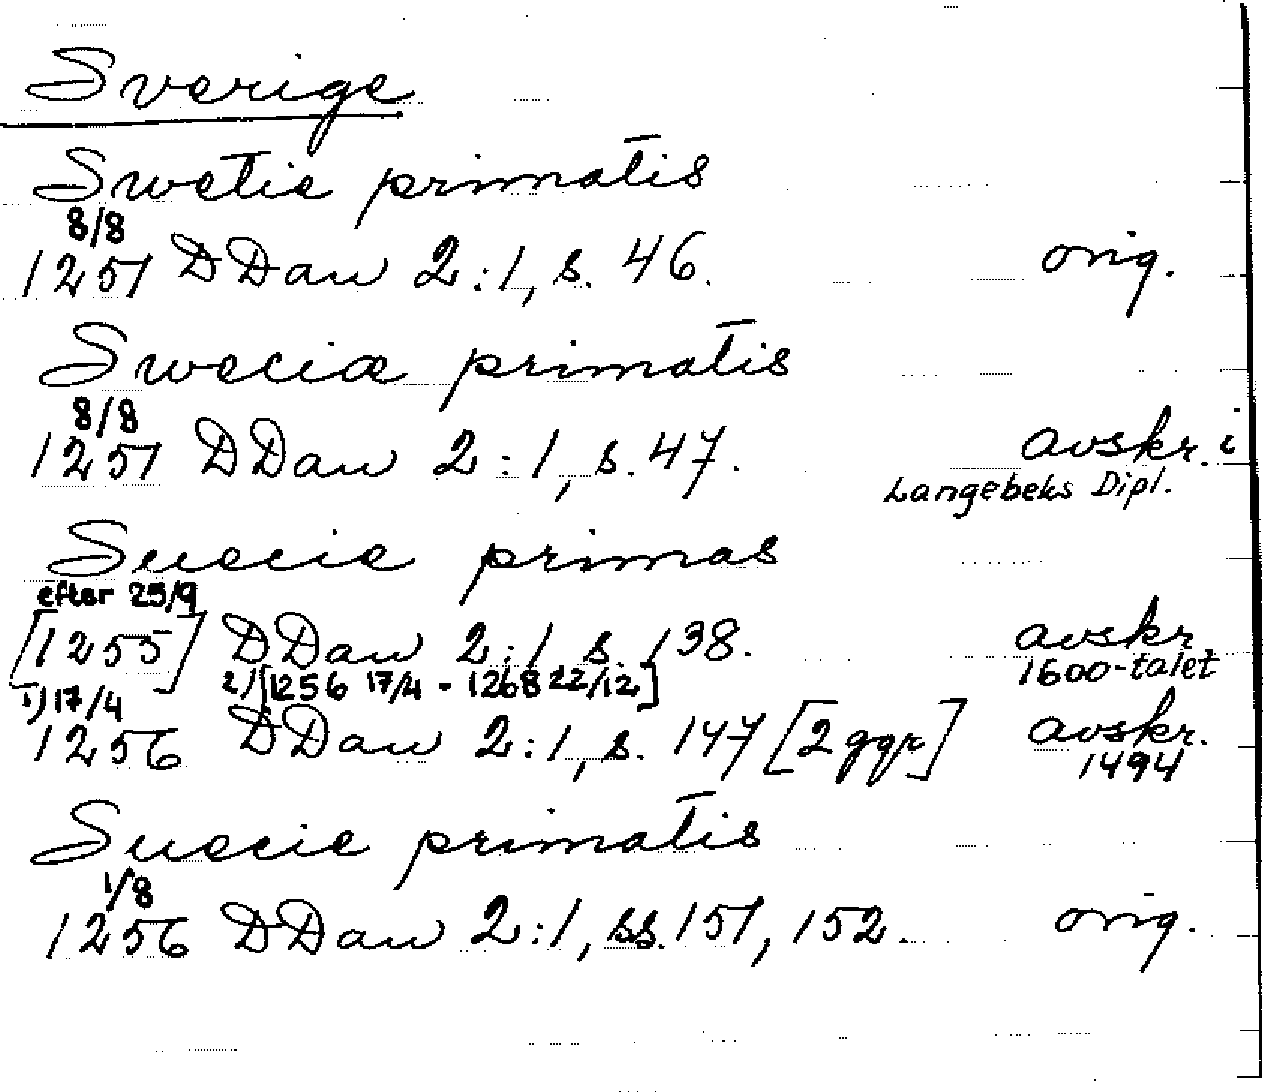 Sverige
Swetie primatis
8/8
1251 DDan 2:1, s. 46. orig.
Sweciæ primatis
8/8
1251 DDan 2:1, s. 47. avskr. i
Langebeks Dipl.
Suecie primas
efter 25/9
[1255] DDan 2:1 s. 138. avskr.
1600-talet
1) 17/4 2) [1256 17/4 - 1268 22/12]
1256 DDan 2:1, s. 147 [2 ggr] avskr.
1494
Suecie primatis
1/8
1256 DDan 2:1, ss. 151, 152. orig.